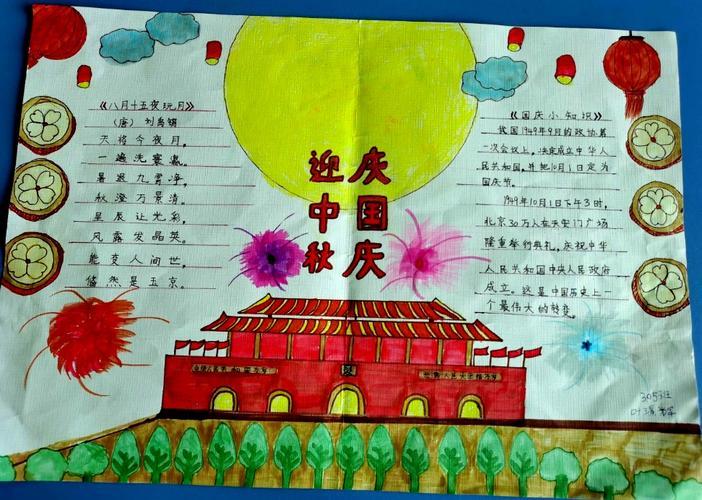 《八月十五夜玩月》
(唐) 刘禹锡
天将今夜月，
一遍洗寰瀛。
暑退九霄净，
秋澄万景清。
星辰让光彩，
风露发晶英。
能变人间世，
悠然是玉京。
迎中秋
庆国庆
《国庆小知识》
我国1949年9月的政协第
一次会议上，决定成立中华人
民共和国，并把10月1日定为
国庆节。
1949年10月1日下午3时，
北京30万人在天安门广场
隆重举行典礼，庆祝中华
人民共和国中央人民政府
成立。这是中国历史上一
个最伟大的转变。
305班